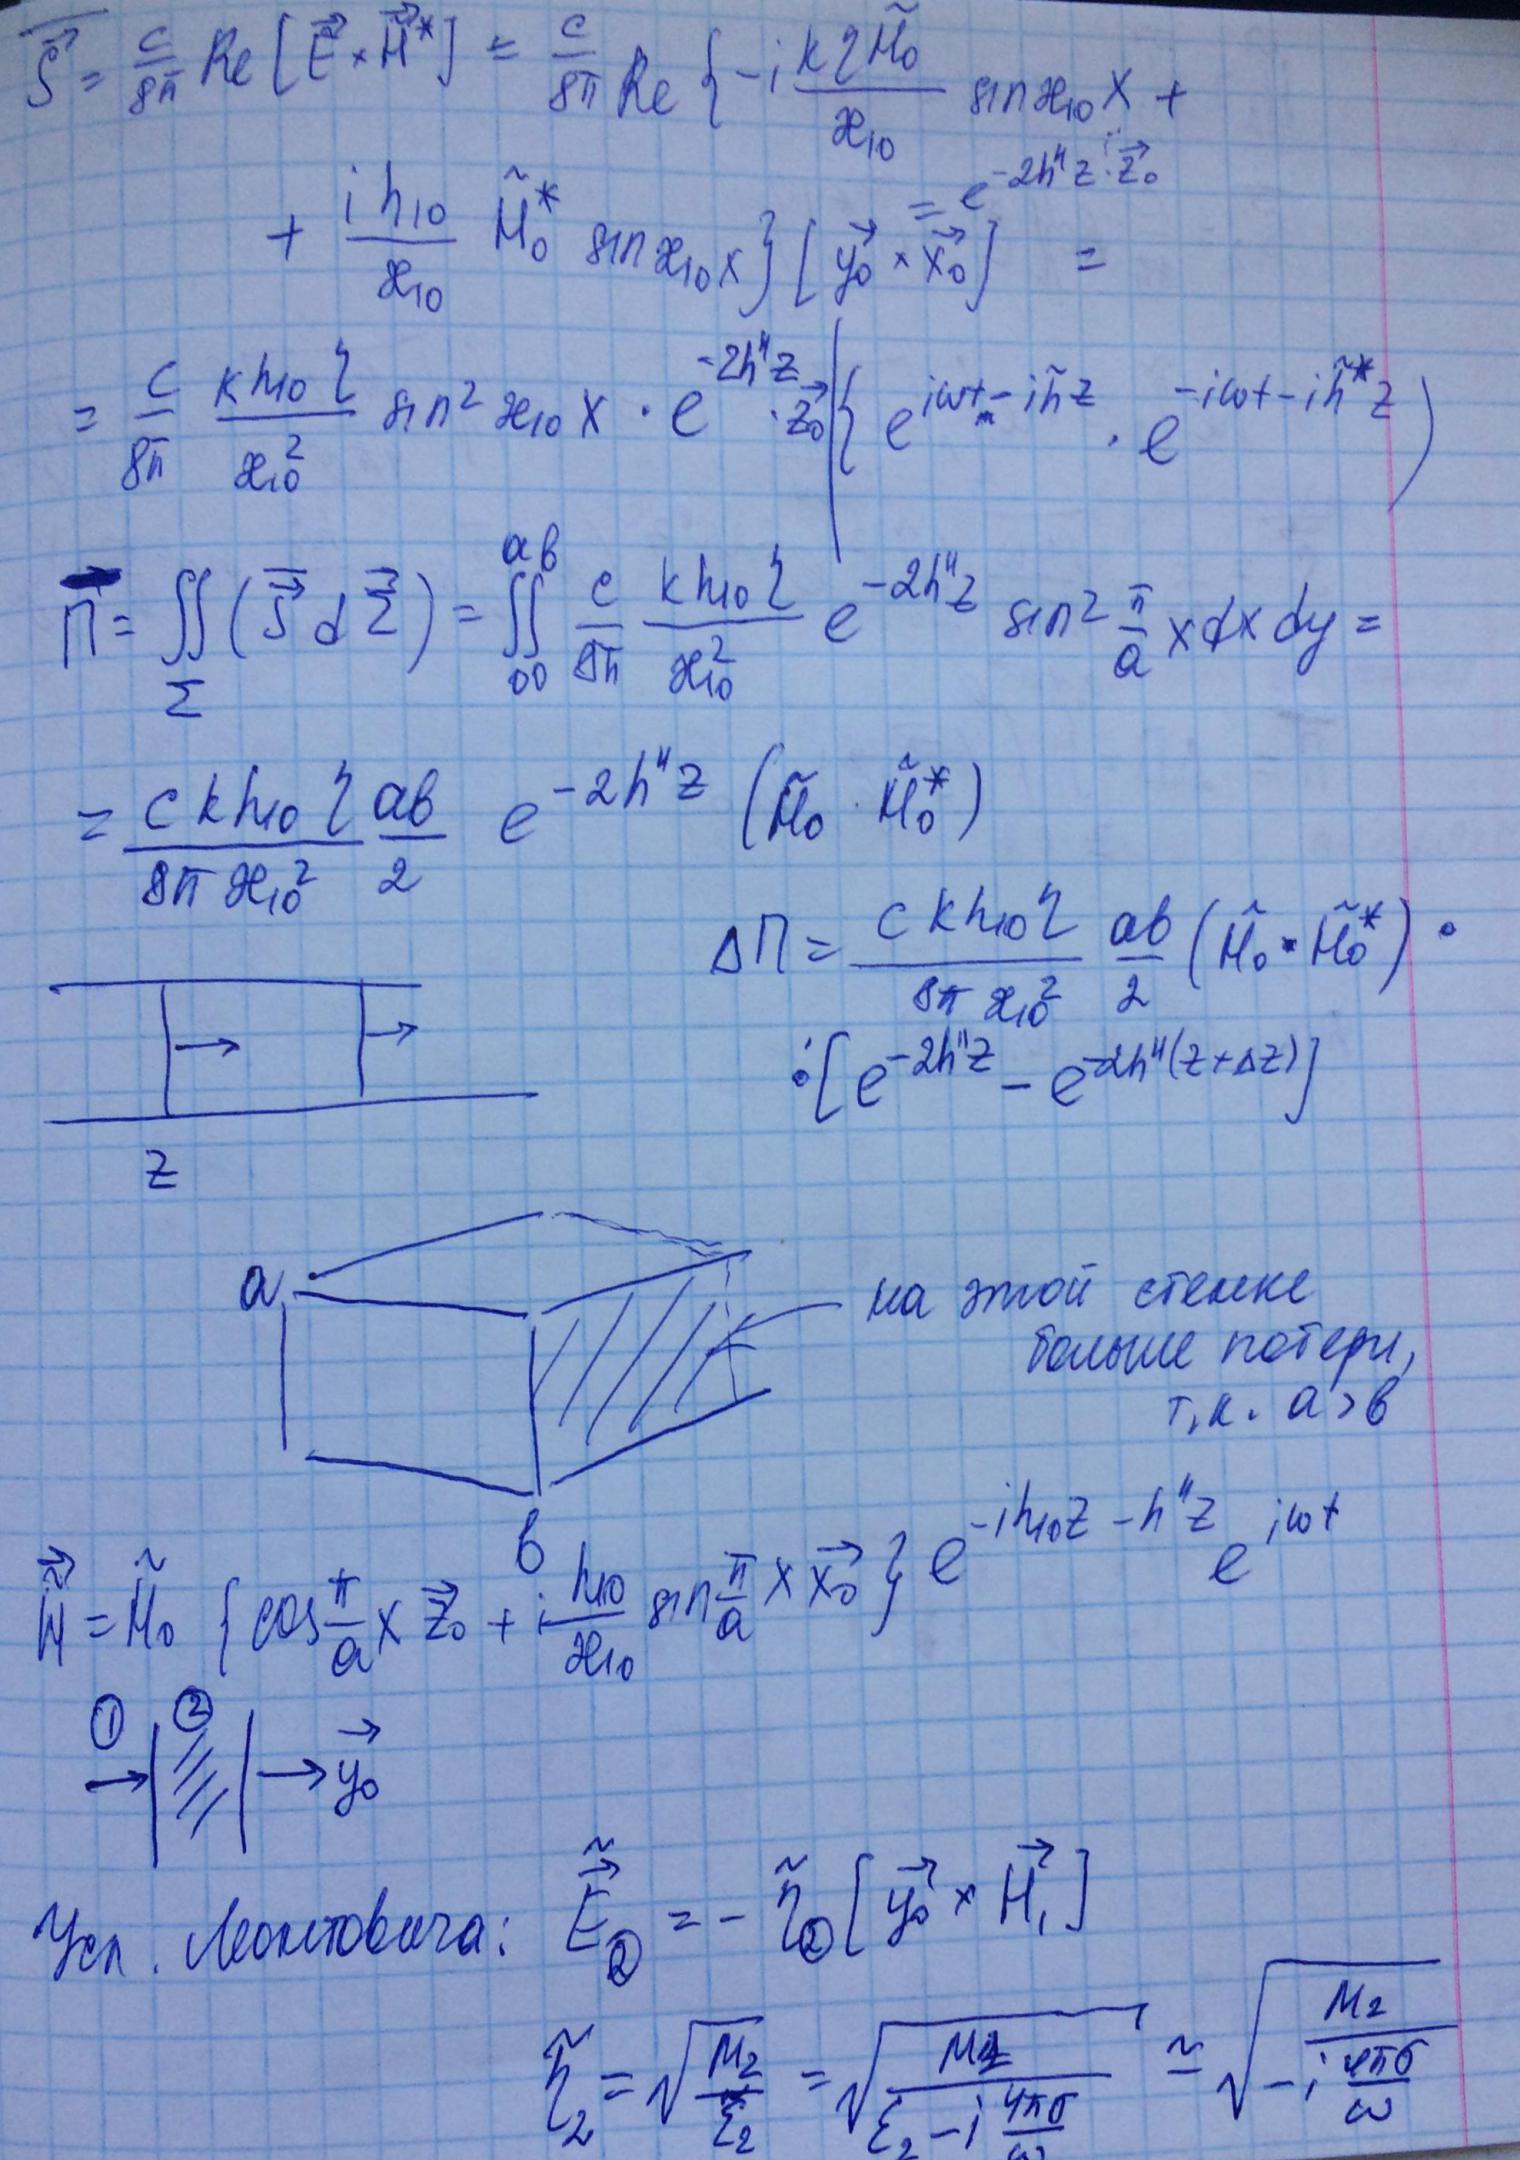 S⃗ = c/8π Re[E⃗ × H⃗*] = c/8π Re{-i kηH̃₀/æ₁₀ sin æ₁₀x +
+ i h₁₀/æ₁₀ H̃₀* sin æ₁₀x}[y⃗₀ × x⃗₀] = e^{-2h"z}·z⃗₀ =
= c/8π kh₁₀η/æ₁₀² sin² æ₁₀x · e^{-2h"z}·z⃗₀ | { e^{iωt-ih̃z} · e^{-iωt-ih̃*z} )
П = ∬_Σ (S⃗ dΣ⃗) = ∬₀₀^{ab} c/8π kh₁₀η/æ₁₀² e^{-2h"z} sin² π/a x dx dy =
= ckh₁₀η/8πæ₁₀² ab/2 e^{-2h"z} (H̃₀ · H̃₀*)
ΔП = ckh₁₀η/8πæ₁₀² ab/2 (H̃₀ · H̃₀*) ·
· [e^{-2h"z} - e^{-2h"(z+Δz)}]
z
a
на этой стенке
больше потери,
т.к. a > b
b
H̃⃗ = H̃₀ {cos π/a x z⃗₀ + i h₁₀/æ₁₀ sin π/a x x⃗₀} e^{-ih₁₀z - h"z} e^{iωt}
① ② y⃗₀
Усл. Леонтовича: Ẽ⃗② = - η̃② [y⃗₀ × H⃗₁]
η̃₂ = √(μ₂/ε̃₂) = √(μ₂/(ε₂ - i 4πσ/ω)) ≃ √(μ₂/(-i 4πσ/ω))